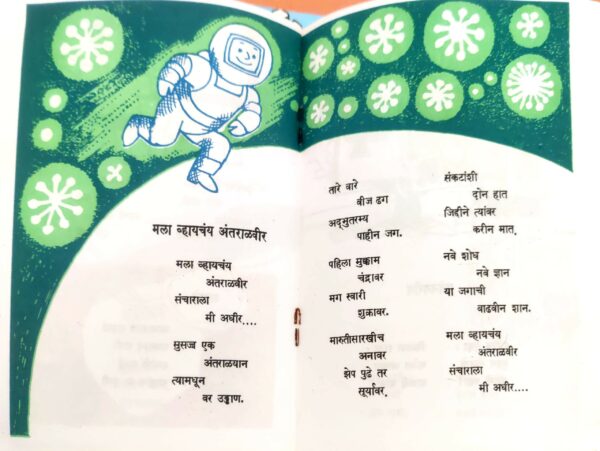 मला व्हायचंय अंतराळवीर
मला व्हायचंय
अंतराळवीर
संचाराला
मी अधीर....
सुसज्ज एक
अंतराळयान
त्यामधून
वर उड्डाण.
तारे वारे
वीज ढग
अद्भुतरम्य
पाहीन जग.
पहिला मुक्काम
चंद्रावर
मग स्वारी
शुक्रावर.
मारुतीसारखीच
अनावर
झेप पुढे तर
सूर्यावर.
संकटांशी
दोन हात
जिद्दीने त्यांवर
करीन मात.
नवे शोध
नवे ज्ञान
या जगाची
वाढवीन शान.
मला व्हायचंय
अंतराळवीर
संचाराला
मी अधीर....